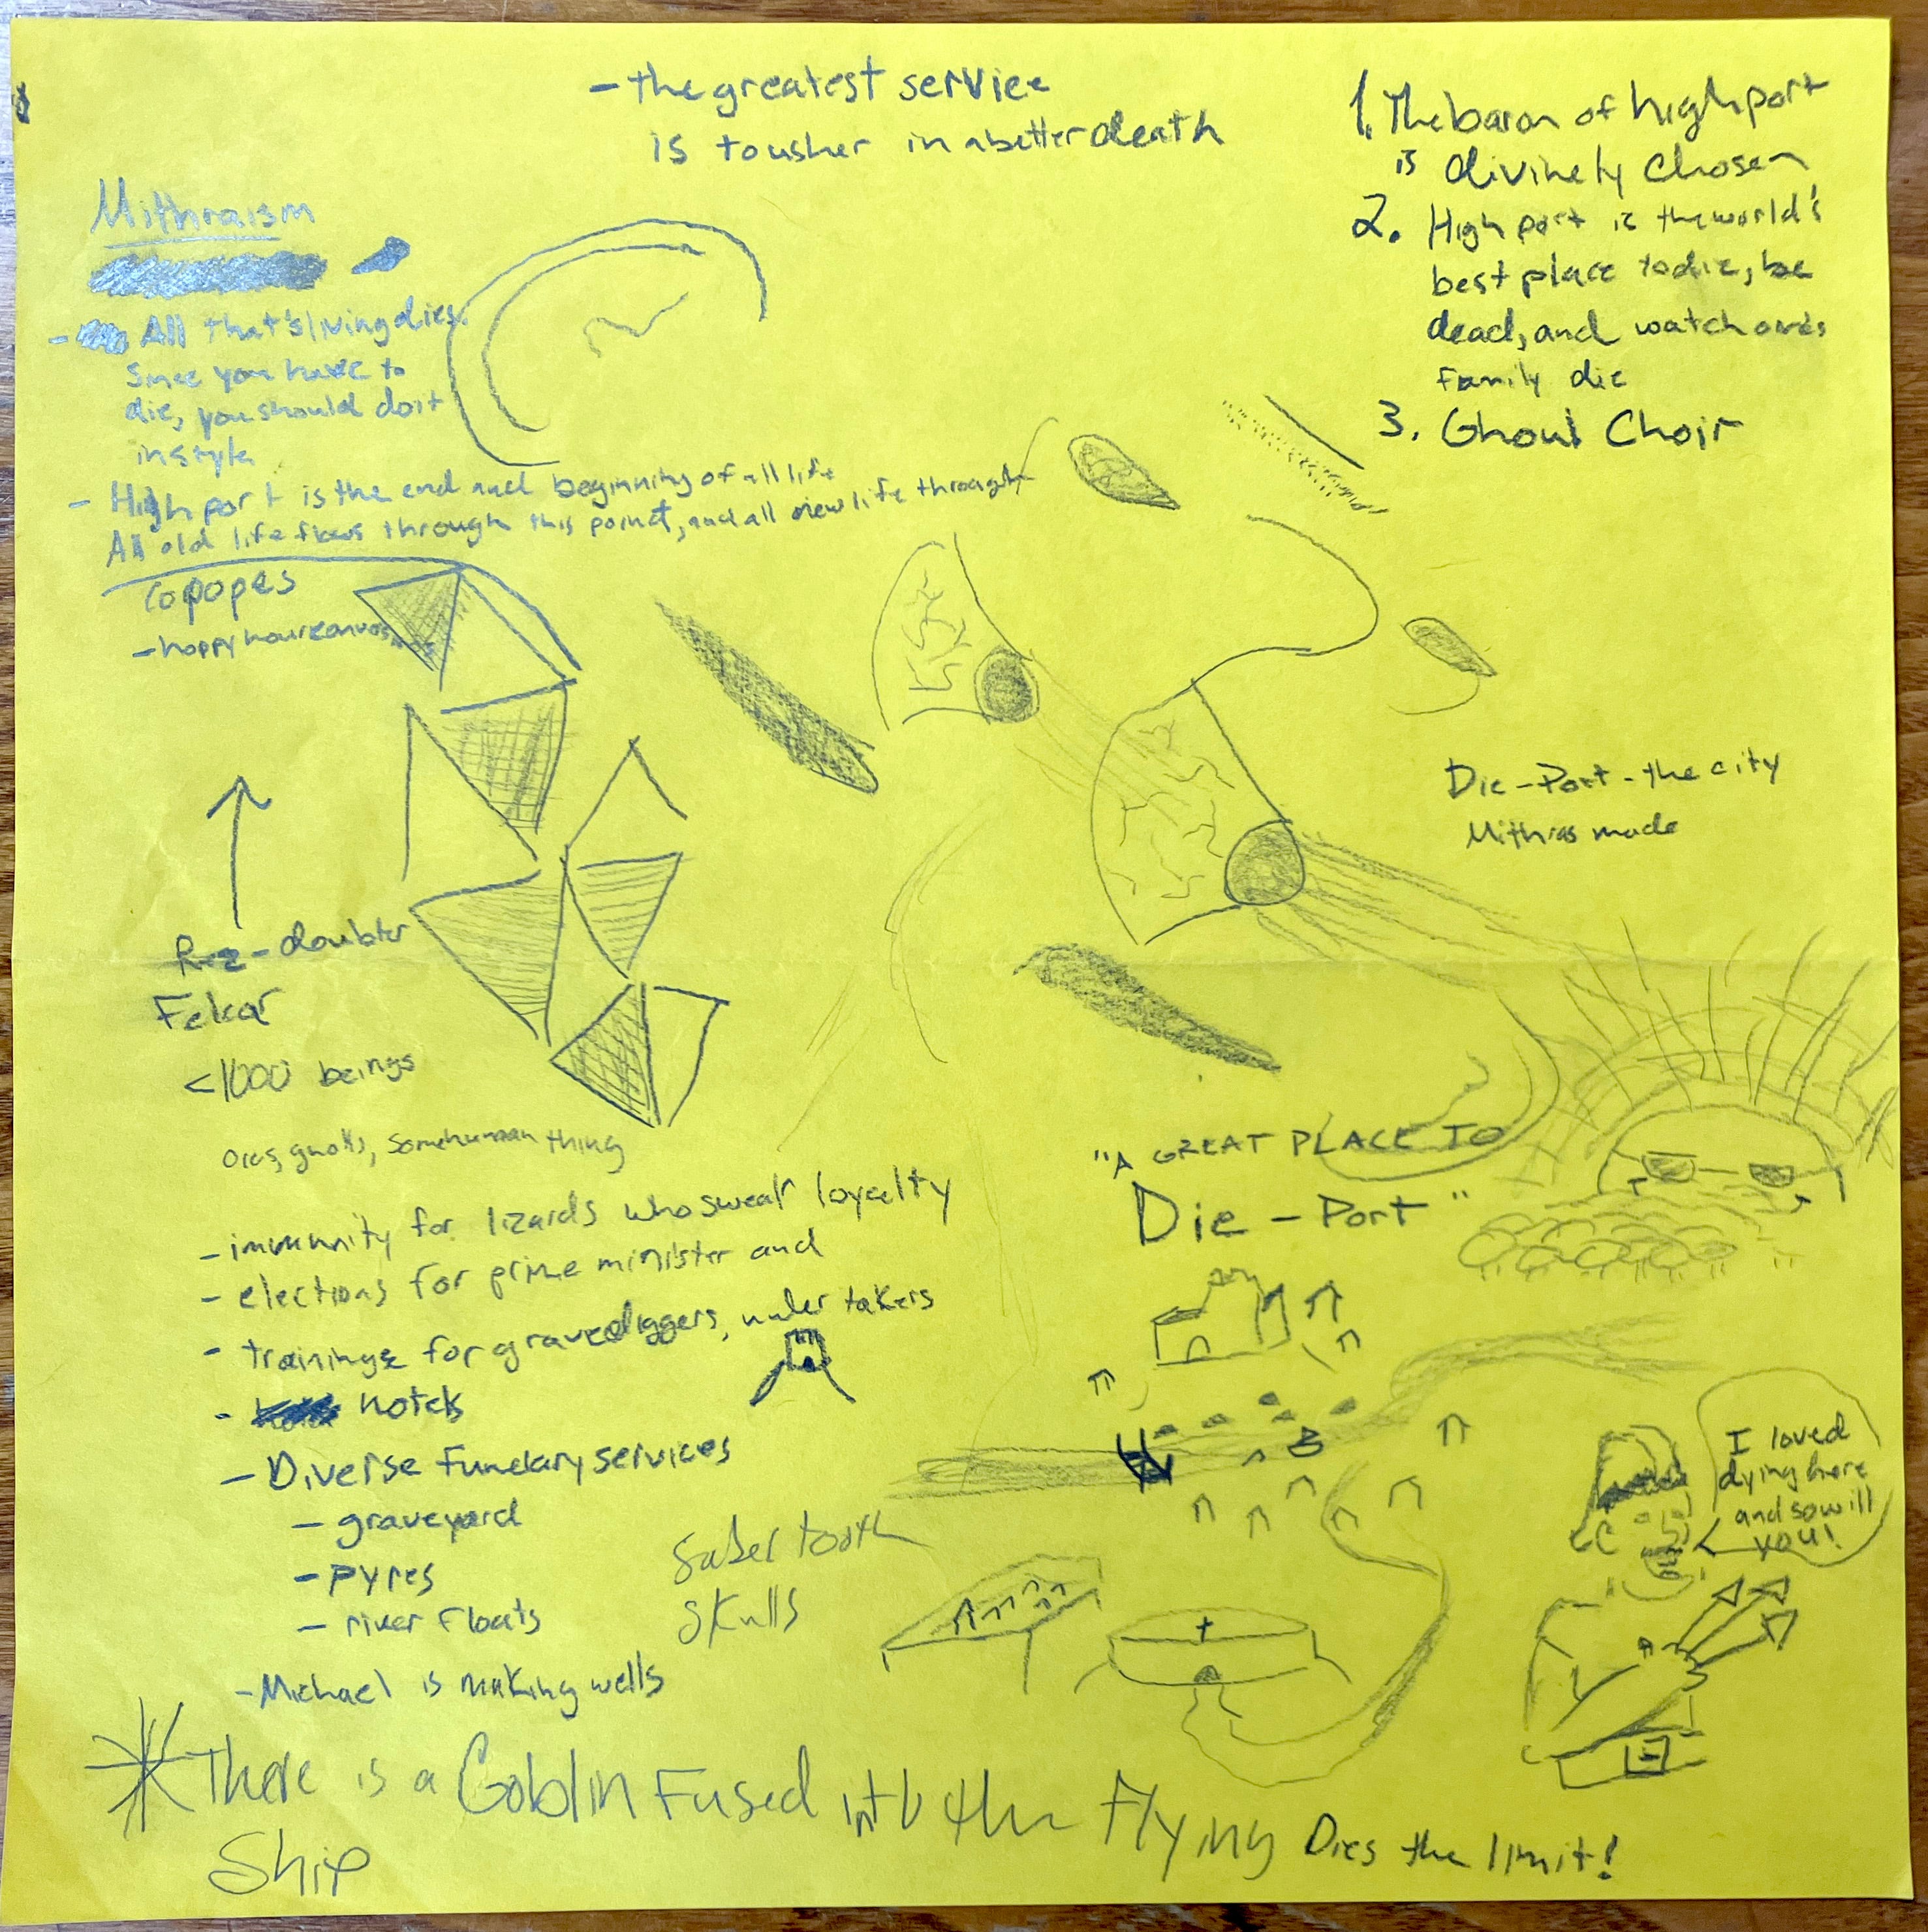 - the greatest service
is to usher in a better death
1. The baron of highport
is divinely chosen
2. High port is the world's
best place to die, be
dead, and watch one's
family die
3. Ghoul Choir
Mithraism
- All that's living dies.
Since you have to
die, you should do it
in style
- High port is the end and beginning of all life
All old life flows through this point, and all new life through
Copopes
- happy hour
Die-Port - the city
Mithras made
doubter
Fekar
<1000 beings
orcs, gnolls, some human thing
- immunity for lizards who swear loyalty
- elections for prime minister and
- trainings for gravediggers, under takers
- hotels
- Diverse Funerary services
- graveyard
- pyres
- river floats
- Michael is making wells
saber tooth
skulls
"A GREAT PLACE TO
Die - Port"
I loved
dying here
and so will
you!
There is a Goblin Fused into the Flying
Ship
Dies the limit!